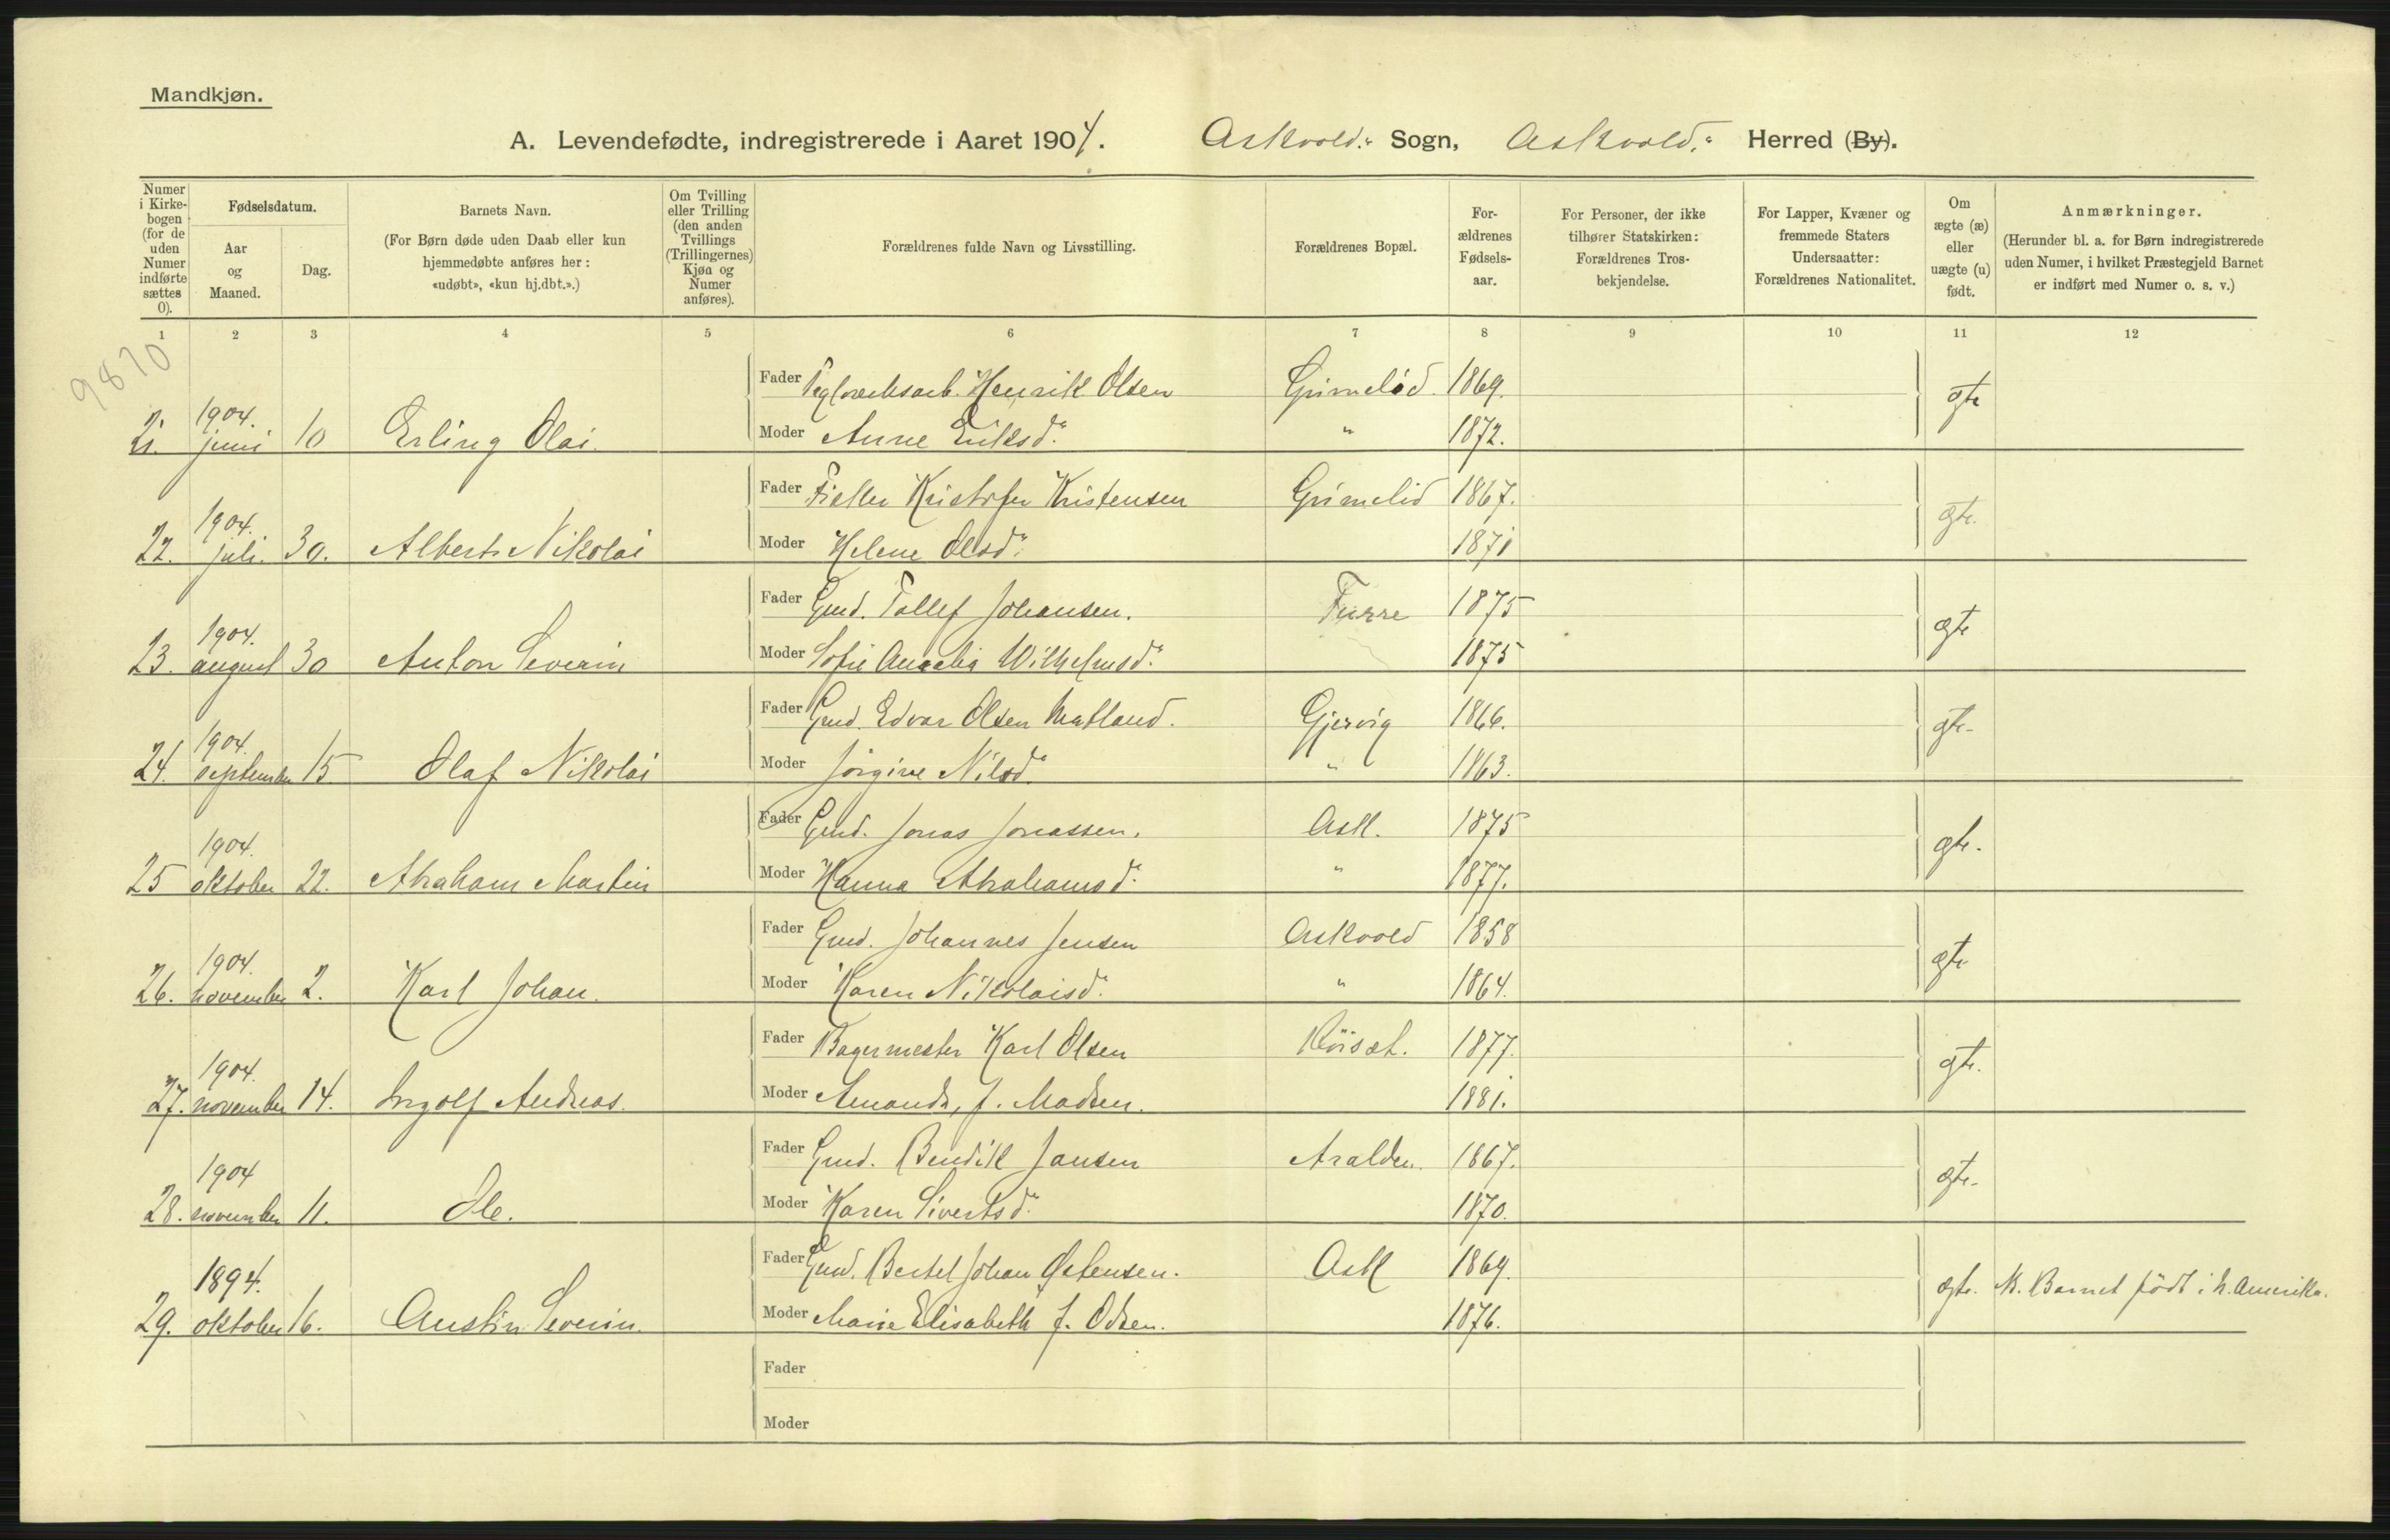 Mandkjøn.
A. Levendefødte, indregistrerede i Aaret 1904. Askvold. Sogn, Askvold. Herred (By).
Numer i Kirke-bogen (for de uden Numer indførte sættes 0).
Fødselsdatum.
Aar og Maaned.
Dag.
Barnets Navn.
(For Børn døde uden Daab eller kun hjemmedøbte anføres her: «udøbt», «kun hj.dbt.».)
Om Tvilling eller Trilling (den anden Tvillings (Trillingernes) Kjøn og Numer anføres).
Forældrenes fulde Navn og Livsstilling.
Forældrenes Bopæl.
For-ældrenes Fødsels-aar.
For Personer, der ikke tilhører Statskirken: Forældrenes Tros-bekjendelse.
For Lapper, Kvæner og fremmede Staters Undersaatter: Forældrenes Nationalitet.
Om ægte (æ) eller uægte (u) født.
Anmærkninger.
(Herunder bl. a. for Børn indregistrerede uden Numer, i hvilket Præstegjeld Barnet er indført med Numer o. s. v.)
1 2 3 4 5 6 7 8 9 10 11 12
9870
Fader Henrik Olsen Grimelid. 1869.
21. 1904. juni 10 Erling Olai. Moder Anne Eriksd. " 1872. ægte
Fader Kristofer Kristensen Grimelid 1867.
22. 1904. juli. 30. Albert Nikolai Moder Helene Olsd. 1871 ægte.
Fader Gmd. Tollef Johansen. Furre 1875
23. 1904. august 30 Anton Severin Moder Sofie Wilhelmsd. 1875 ægte
Fader Gmd. Edvar Olsen Matland. Gjervig 1866.
24. 1904. september 15 Olaf Nikolai Moder Jørgine Nilsd. " 1863. ægte
Fader Gmd. Jonas Jonassen. Ask. 1875
25 1904. oktober 22. Abraham Martin Moder Hanna Abrahamsd. " 1877. ægte.
Fader Gmd. Johannes Jensen Askvold 1858
26. 1904. november 2. Karl Johan. Moder Karen Nikolaisd. " 1864. ægte
Fader Bagermester Karl Olsen 1877.
27. 1904. november 14. Ingolf Andreas. Moder Amanda, f. Madsen. 1881. ægte.
Fader Gmd. Bendik Jansen Aralden. 1867.
28. 1904 november 11. Ole. Moder Karen Sivertsd. 1870. ægte.
Fader Gmd. Bertel Johan Østensen. Ask 1869.
29. 1894. oktober 16. Austin Severin. Moder Marie Elisabeth f. Olsen. 1876. ægte. N. Barnet født i N. Amerika.
Fader
Moder